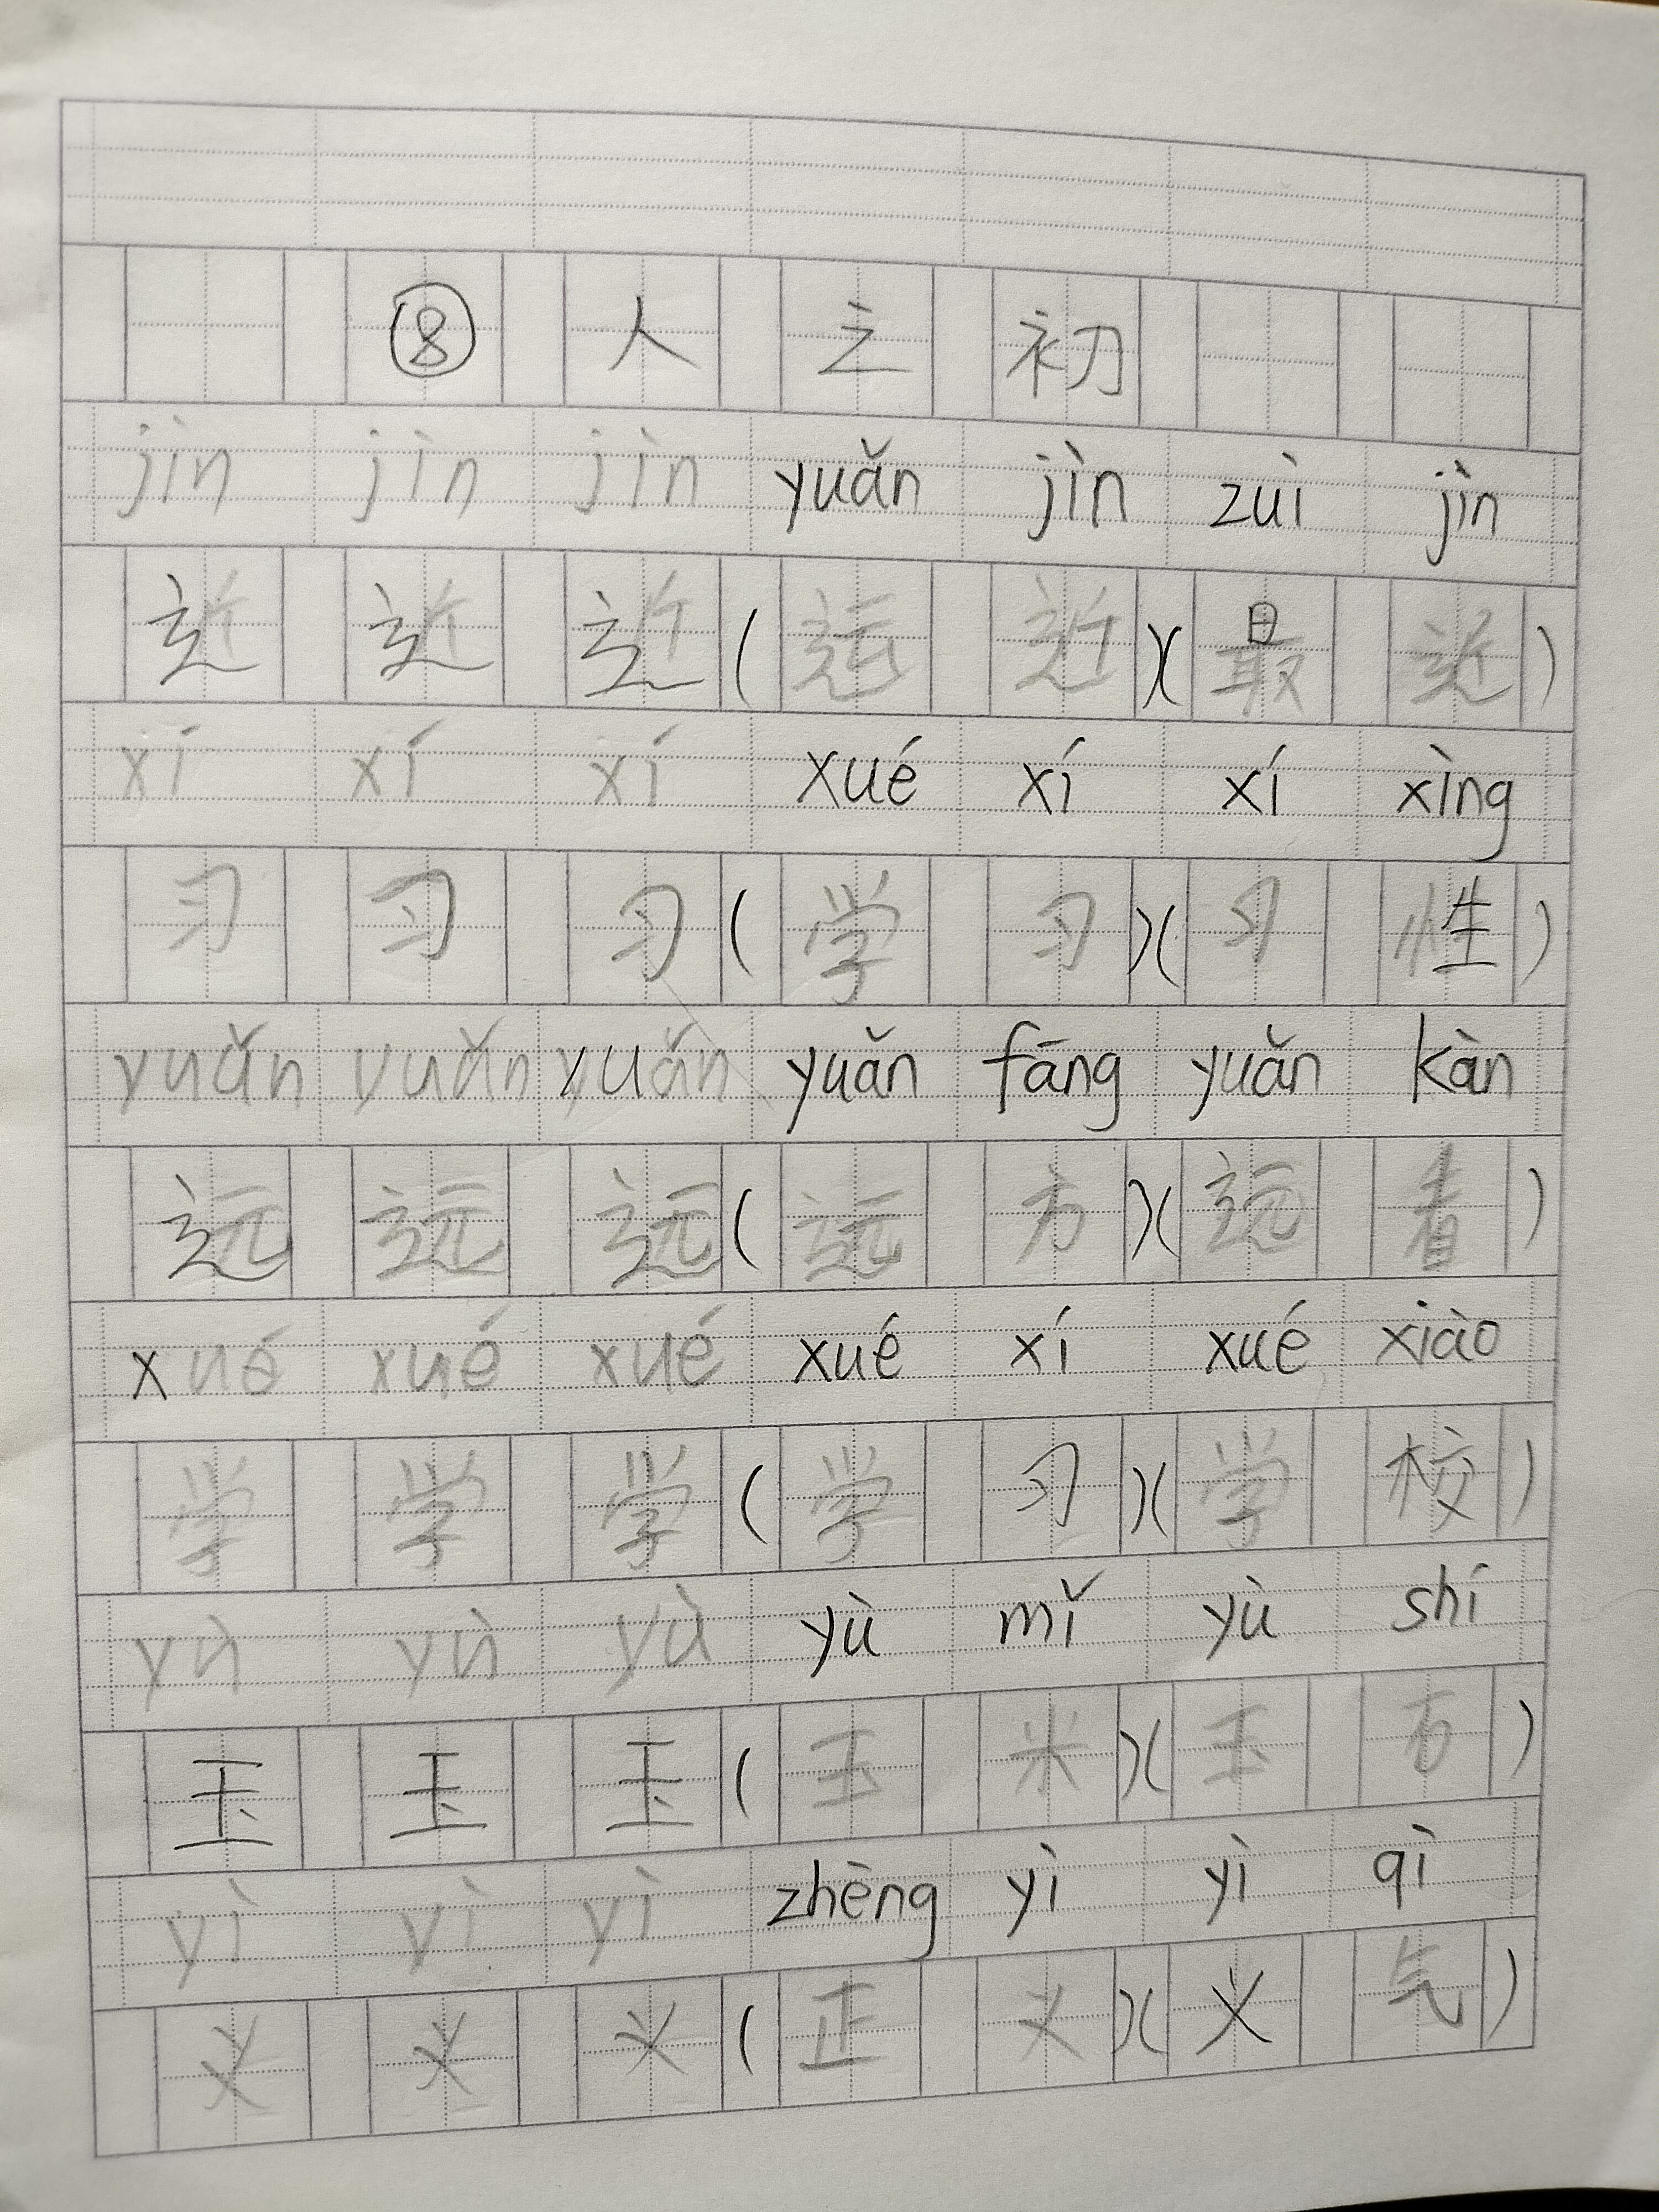 ⑧ 人 之 初
jìn jìn jìn yuǎn jìn zuì jìn
近 近 近 ( 远 近 )( 最 近 )
xí xí xí xué xí xí xìng
习 习 习 ( 学 习 )( 习 性 )
yuǎn yuǎn yuǎn yuǎn fāng yuǎn kàn
远 远 远 ( 远 方 )( 远 看 )
xué xué xué xué xí xué xiào
学 学 学 ( 学 习 )( 学 校 )
yù yù yù yù mǐ yù shí
玉 玉 玉 ( 玉 米 )( 玉 石 )
yì yì yì zhèng yì yì qì
义 义 义 ( 正 义 )( 义 气 )